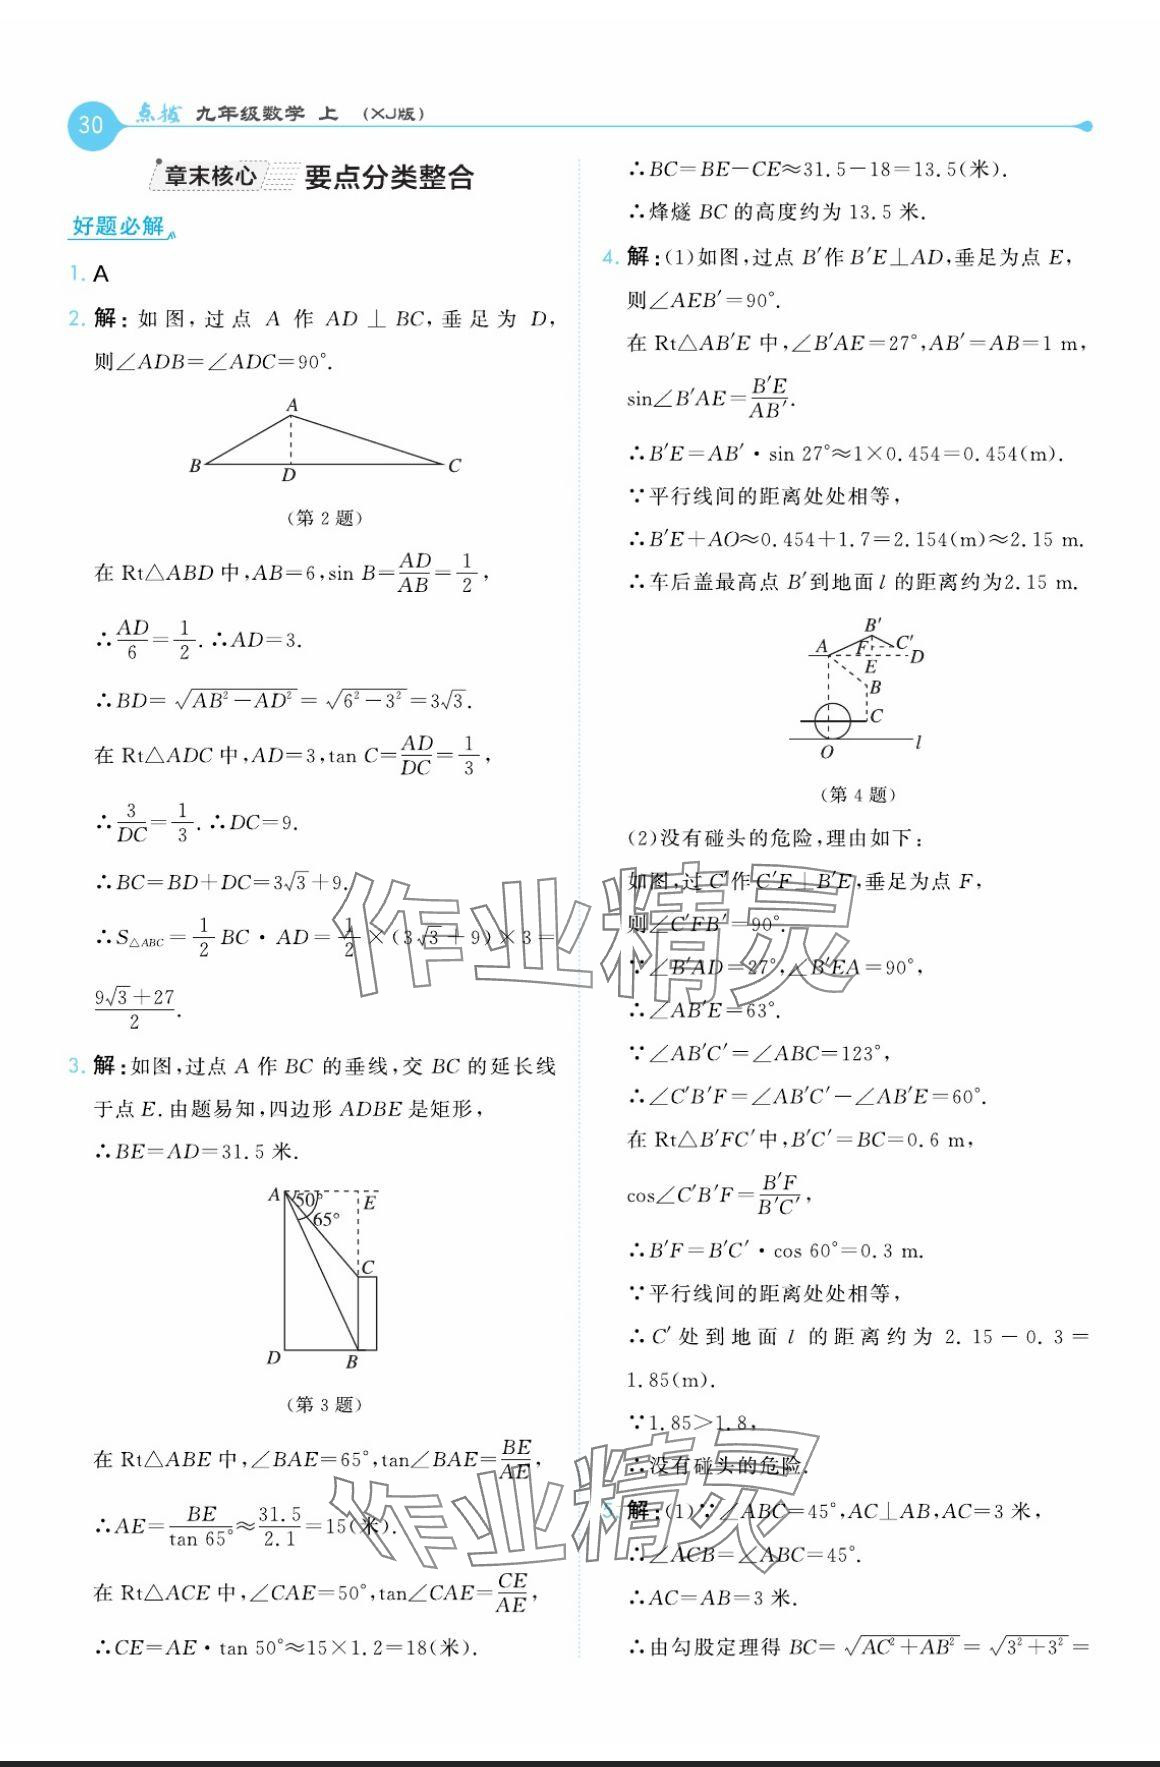 30 点拨 九年级数学 上 (XJ版)
章末核心 要点分类整合
好题必解
1. A
2. 解：如图，过点 A 作 AD⊥BC，垂足为 D，
则∠ADB=∠ADC=90°.
A
B
D
C
(第 2 题)
在 Rt△ABD 中，AB=6，sin B=AD/AB=1/2，
∴AD/6=1/2. ∴AD=3.
∴BD=√(AB²-AD²)=√(6²-3²)=3√3.
在 Rt△ADC 中，AD=3，tan C=AD/DC=1/3，
∴3/DC=1/3. ∴DC=9.
∴BC=BD+DC=3√3+9.
∴S△ABC=1/2 BC·AD=1/2×(3√3+9)×3=
(9√3+27)/2.
3. 解：如图，过点 A 作 BC 的垂线，交 BC 的延长线
于点 E. 由题易知，四边形 ADBE 是矩形，
∴BE=AD=31.5 米.
A
50°
65°
E
C
D
B
(第 3 题)
在 Rt△ABE 中，∠BAE=65°，tan∠BAE=BE/AE，
∴AE=BE/tan 65°≈31.5/2.1=15(米).
在 Rt△ACE 中，∠CAE=50°，tan∠CAE=CE/AE，
∴CE=AE·tan 50°≈15×1.2=18(米).
∴BC=BE-CE≈31.5-18=13.5(米).
∴烽燧 BC 的高度约为 13.5 米.
4. 解：(1)如图，过点 B′作 B′E⊥AD，垂足为点 E，
则∠AEB′=90°.
在 Rt△AB′E 中，∠B′AE=27°，AB′=AB=1 m，
sin∠B′AE=B′E/AB′.
∴B′E=AB′·sin 27°≈1×0.454=0.454(m).
∵平行线间的距离处处相等，
∴B′E+AO≈0.454+1.7=2.154(m)≈2.15 m.
∴车后盖最高点 B′到地面 l 的距离约为2.15 m.
B′
A
F
C′
D
E
B
C
O
l
(第 4 题)
(2)没有碰头的危险，理由如下：
如图，过 C′作 C′F⊥B′E，垂足为点 F，
则∠C′FB′=90°.
∵∠B′AD=27°，∠B′EA=90°，
∴∠AB′E=63°.
∵∠AB′C′=∠ABC=123°，
∴∠C′B′F=∠AB′C′-∠AB′E=60°.
在 Rt△B′FC′中，B′C′=BC=0.6 m，
cos∠C′B′F=B′F/B′C′，
∴B′F=B′C′·cos 60°=0.3 m.
∵平行线间的距离处处相等，
∴C′处到地面 l 的距离约为 2.15-0.3=
1.85(m).
∵1.85>1.8，
∴没有碰头的危险.
5. 解：(1)∵∠ABC=45°，AC⊥AB，AC=3 米，
∴∠ACB=∠ABC=45°.
∴AC=AB=3 米.
∴由勾股定理得 BC=√(AC²+AB²)=√(3²+3²)=
作业精灵
作业精灵